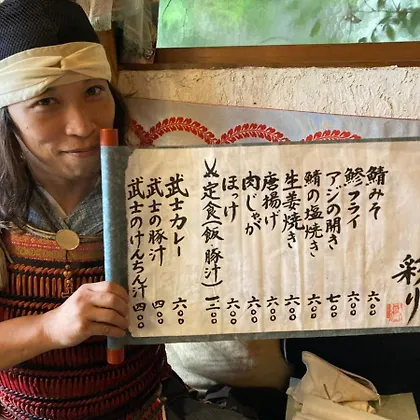 彩り
鯖みそ 六〇〇
鯵フライ 六〇〇
アジの開き 七〇〇
鯖の塩焼き 六〇〇
生姜焼き 六〇〇
唐揚げ 六〇〇
肉じゃが 六〇〇
ほっけ 六〇〇
定食(飯 豚汁) 三〇〇
武士カレー 六〇〇
武士の豚汁 四〇〇
武士のけんちん汁 四〇〇